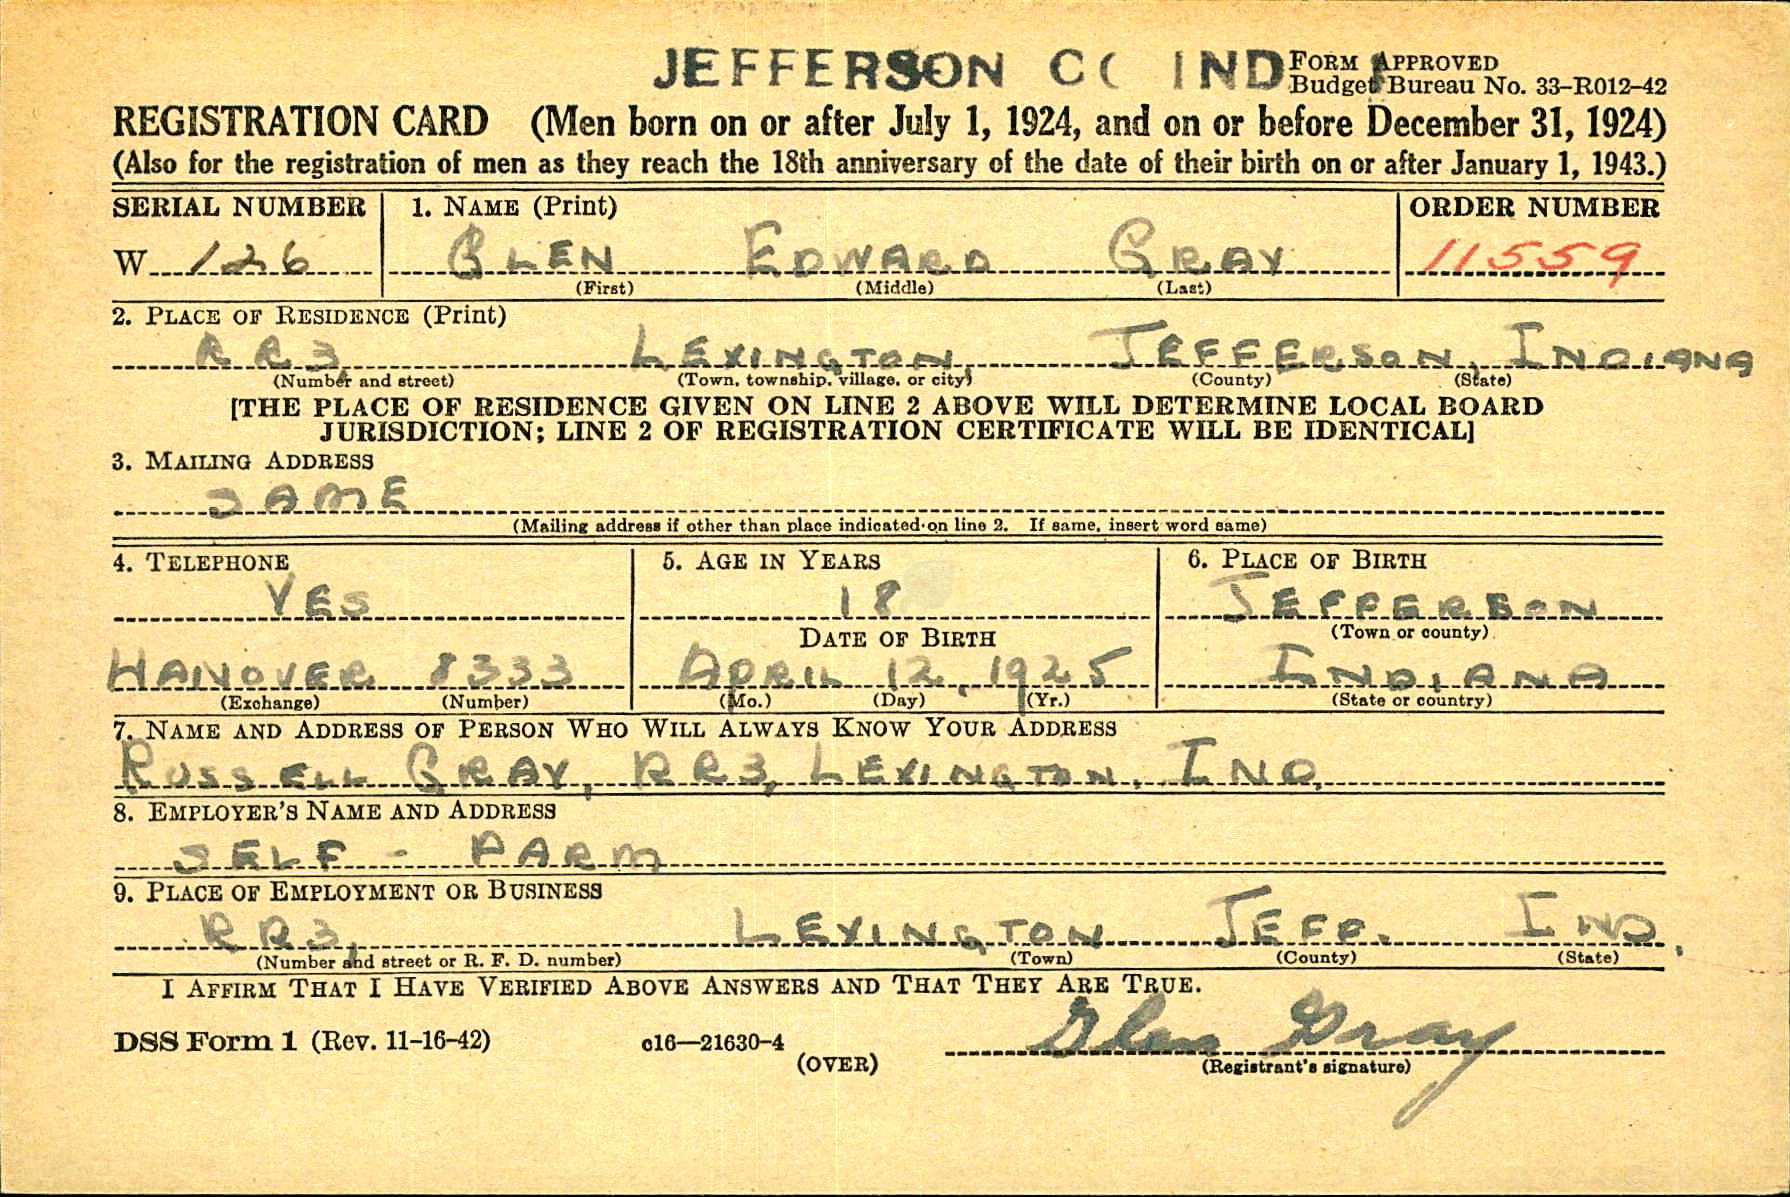 JEFFERSON CO IND
FORM APPROVED
Budget Bureau No. 33–R012–42
REGISTRATION CARD (Men born on or after July 1, 1924, and on or before December 31, 1924)
(Also for the registration of men as they reach the 18th anniversary of the date of their birth on or after January 1, 1943.)
SERIAL NUMBER 1. NAME (Print) ORDER NUMBER
W 126 GLEN EDWARD GRAY 11559
(First) (Middle) (Last)
2. PLACE OF RESIDENCE (Print)
R R 3, LEXINGTON, JEFFERSON, INDIANA
(Number and street) (Town, township, village, or city) (County) (State)
[THE PLACE OF RESIDENCE GIVEN ON LINE 2 ABOVE WILL DETERMINE LOCAL BOARD
JURISDICTION; LINE 2 OF REGISTRATION CERTIFICATE WILL BE IDENTICAL]
3. MAILING ADDRESS
SAME
(Mailing address if other than place indicated on line 2. If same, insert word same)
4. TELEPHONE 5. AGE IN YEARS 6. PLACE OF BIRTH
YES 18 JEFFERSON
DATE OF BIRTH (Town or county)
HANOVER 8333 APRIL 12, 1925 INDIANA
(Exchange) (Number) (Mo.) (Day) (Yr.) (State or country)
7. NAME AND ADDRESS OF PERSON WHO WILL ALWAYS KNOW YOUR ADDRESS
RUSSELL GRAY, RR3, LEXINGTON, IND.
8. EMPLOYER'S NAME AND ADDRESS
SELF - FARM
9. PLACE OF EMPLOYMENT OR BUSINESS
RR3, LEXINGTON JEFF. IND.
(Number and street or R. F. D. number) (Town) (County) (State)
I AFFIRM THAT I HAVE VERIFIED ABOVE ANSWERS AND THAT THEY ARE TRUE.
DSS Form 1 (Rev. 11-16-42) c16—21630-4 Glen Gray
(OVER) (Registrant's signature)